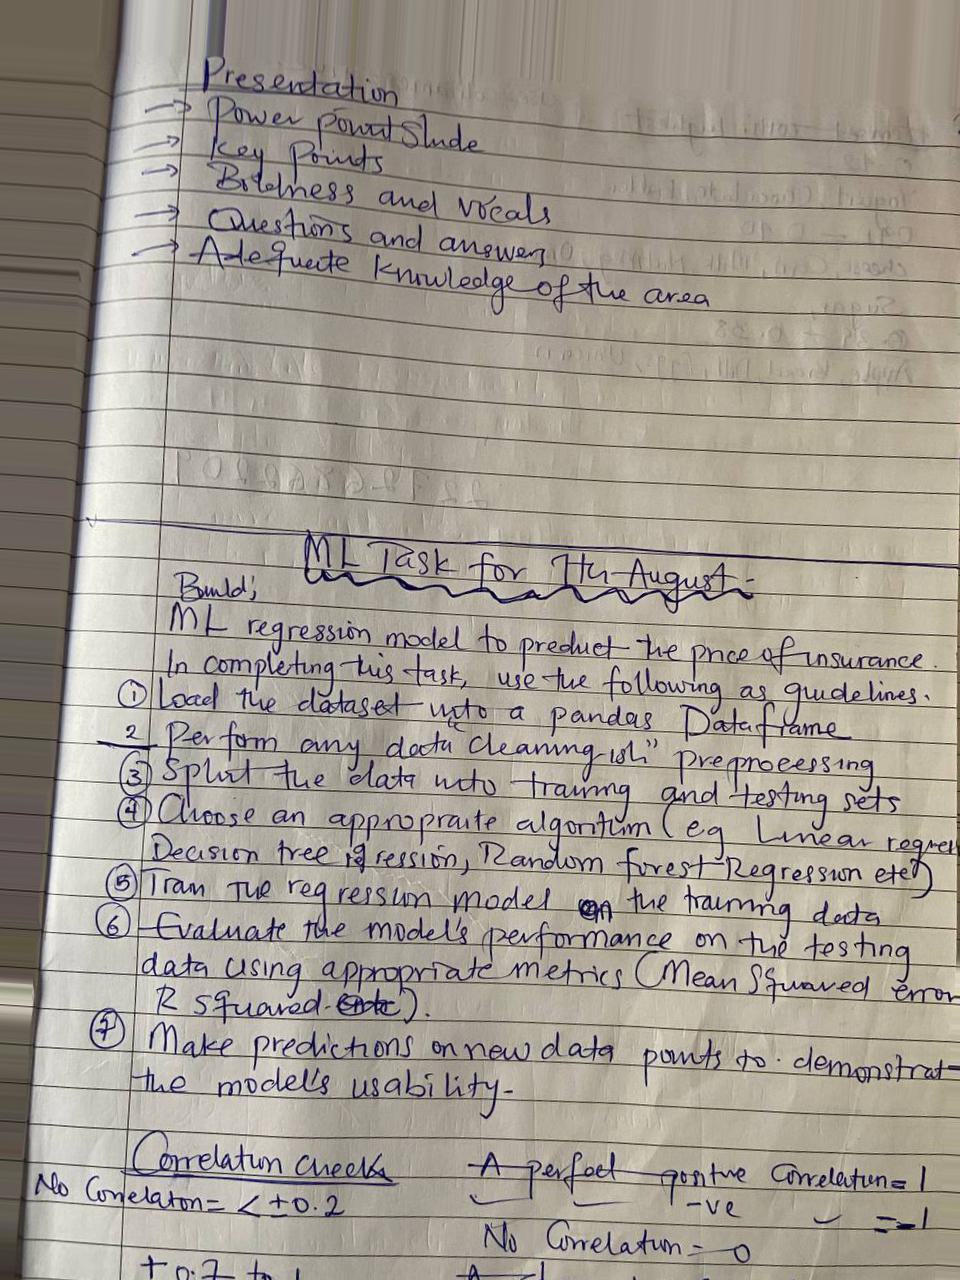 Presentation
→ Power point Slide
→ Key points
→ Boldness and vocals
→ Questions and answers
→ Adequate knowledge of the area
ML Task for 7th August -
Build;
ML regression model to predict the price of insurance.
In completing this task, use the following as guidelines.
① Load the dataset into a pandas Dataframe
2 Perform any data cleaning preprocessing
③ Split the data into training and testing sets
④ Choose an appropraite algoritum (eg Linear regre
Decision tree regression, Random forest Regression etc)
⑤ Train the regression model on the training data
⑥ Evaluate the model's performance on the testing
data using appropriate metrics (Mean Squared error
R squared- etc).
⑦ Make predictions on new data points to demonstrat
the model's usability-
Correlation checks
A perfect positive Correlation = 1
No Correlation = < ±0.2
-ve = -1
No Correlation = 0
+0.7 to 1